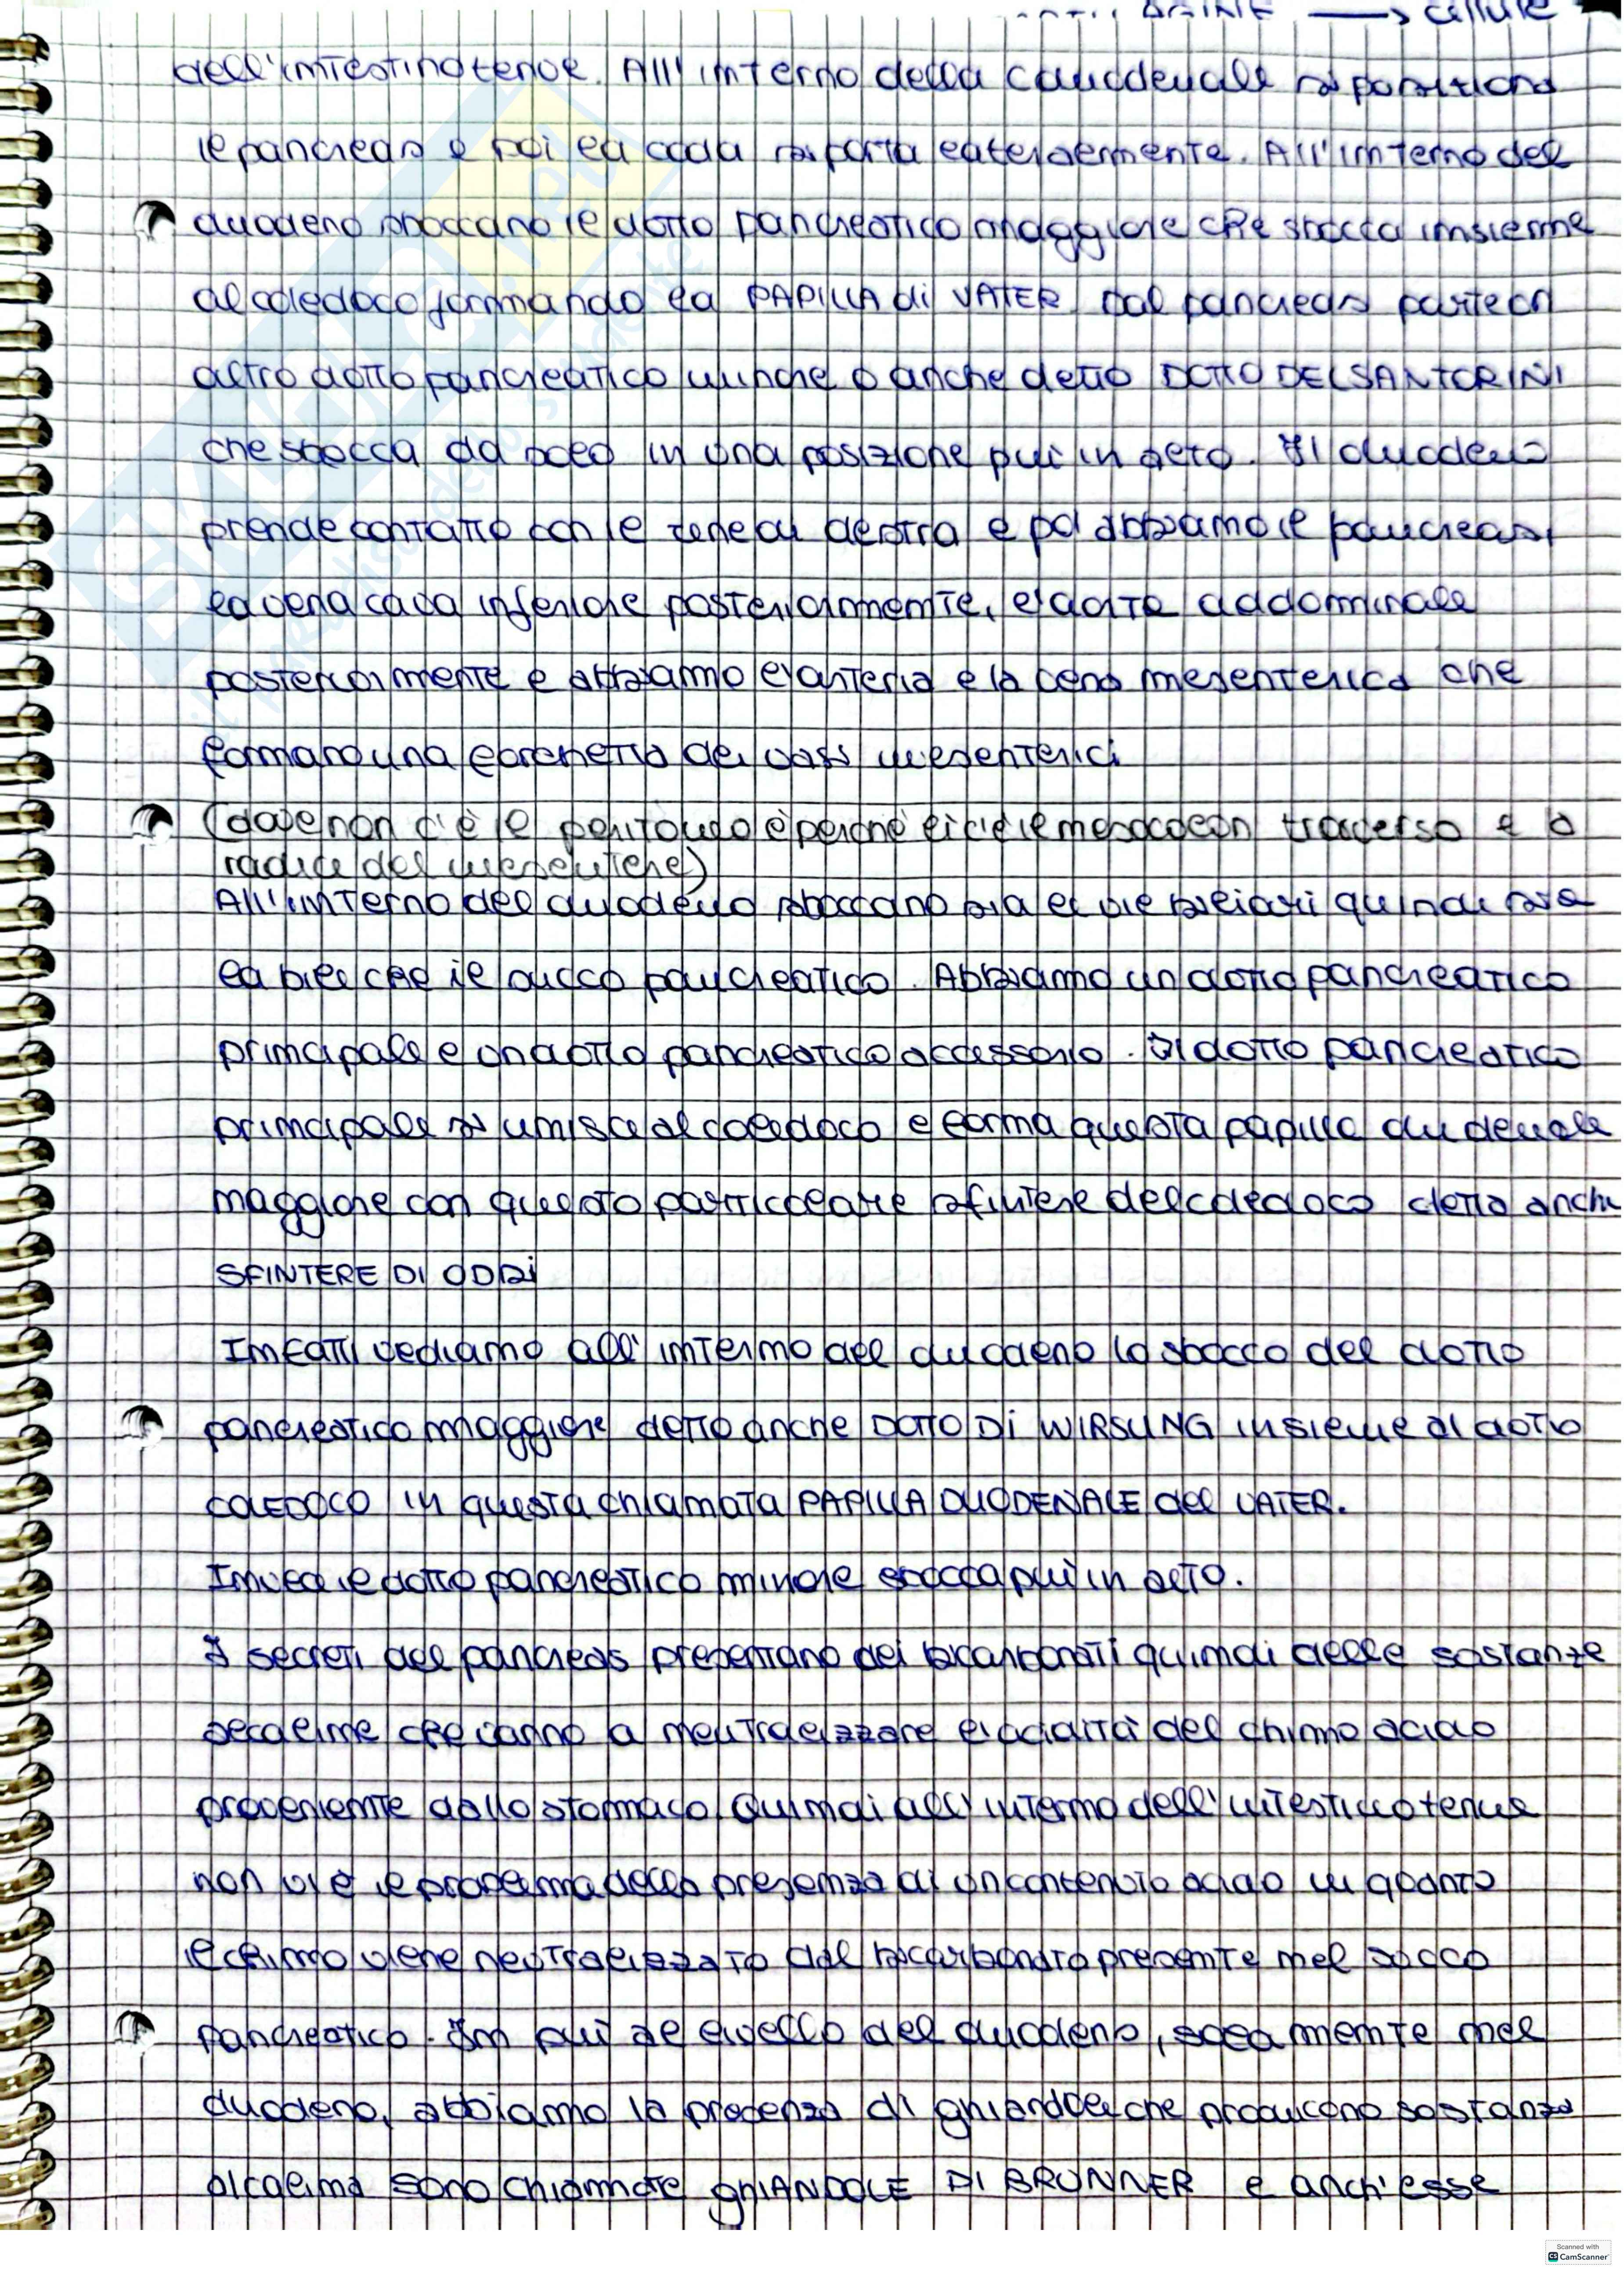 → cellule
dell'intestino tenue. All'interno della c duodenale si posiziona
il pancreas e poi la coda si porta lateralmente. All'interno del
duodeno sboccano il dotto pancreatico maggiore che sbocca insieme
al coledoco formando la PAPILLA di VATER. Dal pancreas parte un
altro dotto pancreatico minore o anche detto DOTTO DEL SANTORINI
che sbocca da solo in una posizione più in alto. Il duodeno
prende contatto con il rene di destra e poi abbiamo il pancreas,
la vena cava inferiore posteriormente, l'aorta addominale
posteriormente e abbiamo l'arteria e la vena mesenterica che
formano una forchetta dei vasi mesenterici
(dove non c'è il peritoneo è perché lì c'è il mesocolon trasverso e o
radice del mesentere)
All'interno del duodeno sboccano sia le vie biliari quindi sia
la bile che il succo pancreatico. Abbiamo un dotto pancreatico
principale e un dotto pancreatico accessorio. Il dotto pancreatico
principale si unisce al coledoco e forma questa papilla duodenale
maggiore con questo particolare sfintere del coledoco detto anche
SFINTERE DI ODDI
Infatti vediamo all'interno del duodeno lo sbocco del dotto
pancreatico maggiore detto anche DOTTO DI WIRSUNG insieme al dotto
COLEDOCO in questa chiamata PAPILLA DUODENALE del VATER.
Invece il dotto pancreatico minore sbocca più in alto.
I secreti del pancreas presentano dei bicarbonati quindi delle sostanze
alcaline che vanno a neutralizzare l'acidità del chimo acido
proveniente dallo stomaco. Quindi all'interno dell'intestino tenue
non vi è il problema della presenza di un contenuto acido in quanto
il chimo viene neutralizzato dal bicarbonato presente nel succo
pancreatico. In più al livello del duodeno, solamente nel
duodeno, abbiamo la presenza di ghiandole che producono sostanza
alcalina sono chiamate ghIANDOLE DI BRUNNER e anch'esse
SKUOLA.net
il paradiso dello studente
Scanned with
CS CamScanner